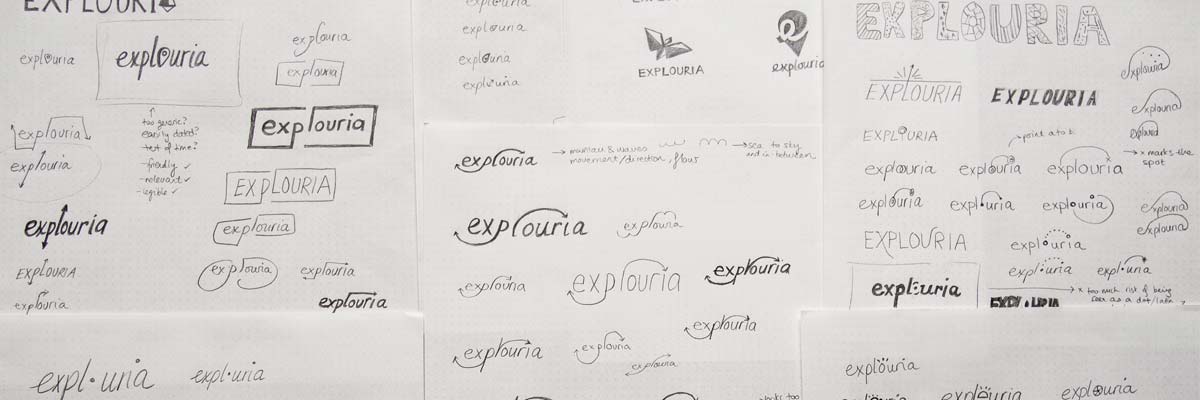 EXPLOURIA
explouria
explouria
explouria
explouria
explouria
↑
too generic?
easily dated?
test of time?
-friendly ✓
-relevant ✓
-legible ✓
explouria
explouria
explouria
EXPLOURIA
explouria
explouria
EXPLOURIA
explouria
explouria
explouria
explouria
expl•uria
expl•uria
explouria
explouria
explouria
explouria
EXPLOURIA
explouria
explouria
→ mountain & waves
movement/direction, flows
→ sea to sky
and in between
explouria
explouria
explouria
explouria
explouria
explouria
explouria
explouria
explouria
EXPLOURIA
EXPLOURIA
EXPLOURIA
EXPLOURIA
point a to b
explouria
explouria
explouria
→ x marks the
spot
explouria
explouria
explouria
explouria
expl•uria
explouria
explouria
explouria
EXPLOURIA
explouria
expl•uria
expl•uria
expl:uria
→ x too much risk of being
seen as a dot/
EXPL•URIA
explöuria
explouria
explouria